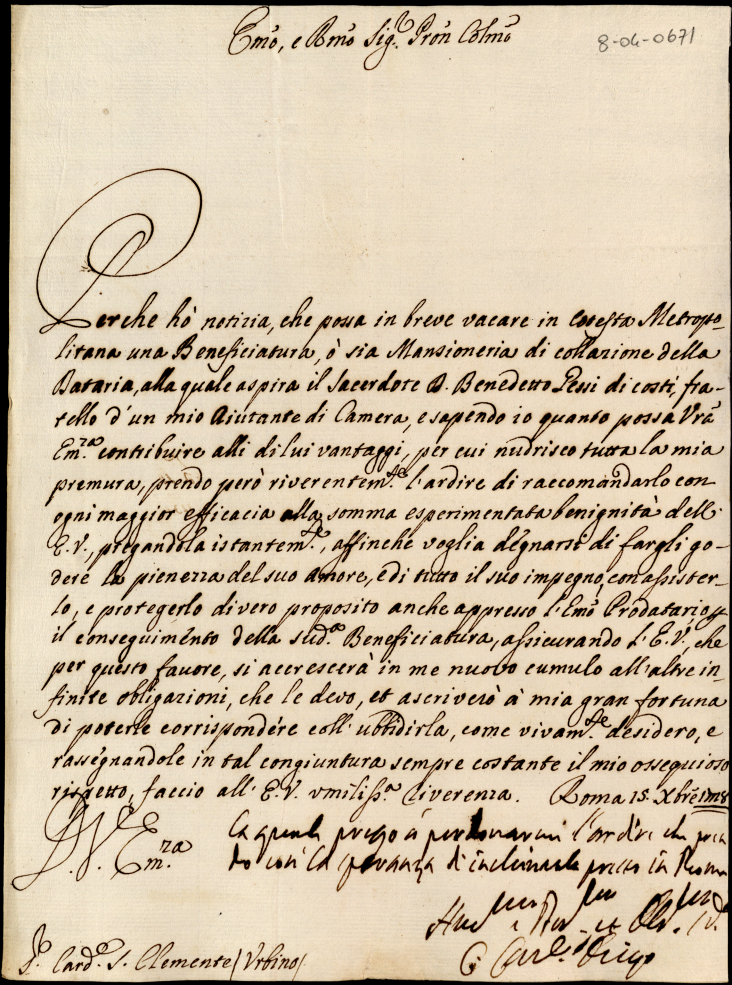 Emõ, e Rmõ Sig.r Prõn Colmõ
8-04-0671
Perche hò notizia, che possa in breve vacare in cotesta Metropo-
litana una Beneficiatura, ò sia Mansioneria di collazione della
Dataria, alla quale aspira il Sacerdote D. Benedetto Pessi di costi, fra-
tello d'un mio Aiutante di Camera, e sapendo io quanto possa Vrã
Em.za contribuire alli di lui vantaggi, per cui nudrisco tutta la mia
premura, prendo però riverentem.te l'ardire di raccomandarlo con
ogni maggior efficacia alla somma esperimentata benignità dell'
E.V., pregandola istantem.te, affinche voglia degnarsi di fargli go-
dere la pienezza del suo amore, e di tutto il suo impegno, con assister-
lo, e protegerlo di vero proposito anche appresso l'Emõ Prodatario, p
il conseguimẽnto della sud.a Beneficiatura, assicurando l'E.V., che
per questo favore, si accrescerà in me nuovo cumulo all'altre in-
finite obligazioni, che le devo, et ascriverò à mia gran fortuna
di poterle corrispondére coll'ubbidirla, come vivam.te desidero, e
rassegnandole in tal congiuntura sempre costante il mio ossequioso
rispetto, faccio all'E.V. umiliss.a riverenza. Roma 15. Xbrẽ 1718
D. V. Em.za
la quale prego à perdonarmi l'ardire che pren
do con la speranza d'inchinarla presto in Roma
S.r Card.e S. Clemente (Urbino)